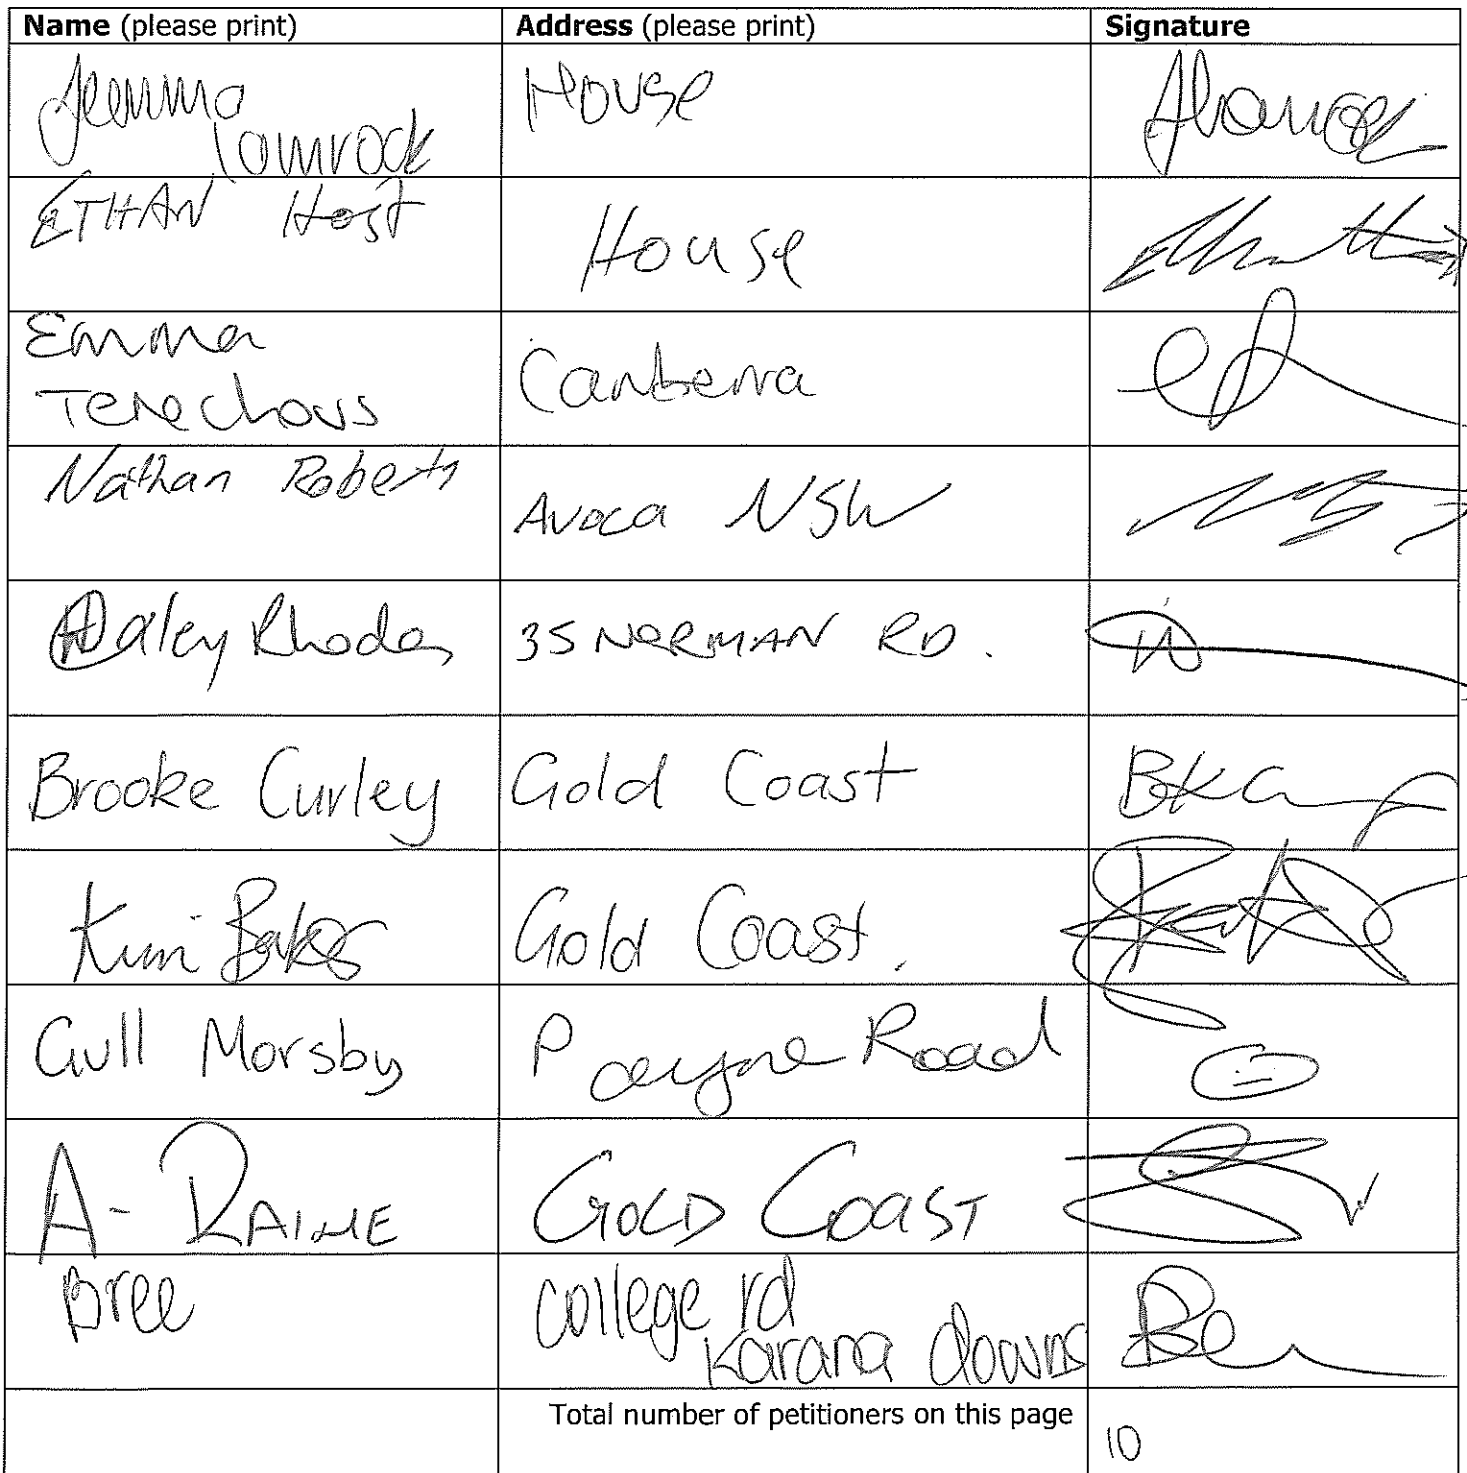 Name (please print) Address (please print) Signature
Jemma House
Tamrock
ETHAN Host House
Emma Canberra
Terechovs
Nathan Roberts Avoca NSW
Haley Rhodes 35 NORMAN RD.
Brooke Curley Gold Coast
Kim Baker Gold Coast.
Gull Morsby Payne Road
A- RAINE GOLD COAST
Bree college rd
Karana downs
Total number of petitioners on this page 10